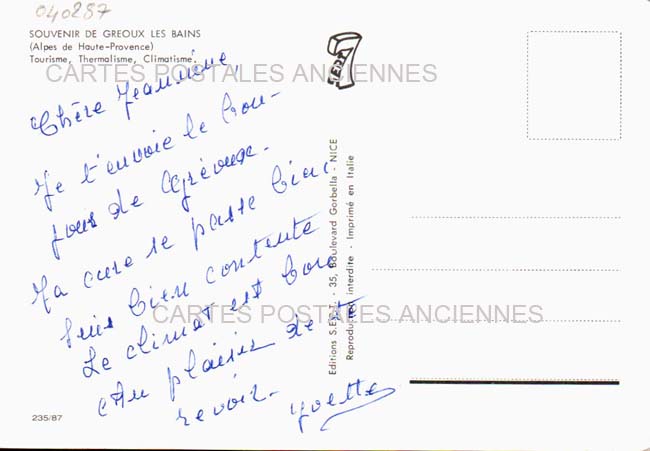 040287
SOUVENIR DE GREOUX LES BAINS
(Alpes de Haute-Provence)
Tourisme, Thermalisme, Climatisme.
CARTES POSTALES ANCIENNES
Chère Jeannine,
Je t'envoie le bon-
jour de Gréoux.
Ma cure se passe bien
suis bien contente
Le climat est bon
Au plaisir de te
revoir. Yvette
CARTES POSTALES ANCIENNES
235/87
Editions S.E.P.T. - 35, Boulevard Gorbella - NICE
Reproduction interdite - Imprimé en Italie
SEPT
7